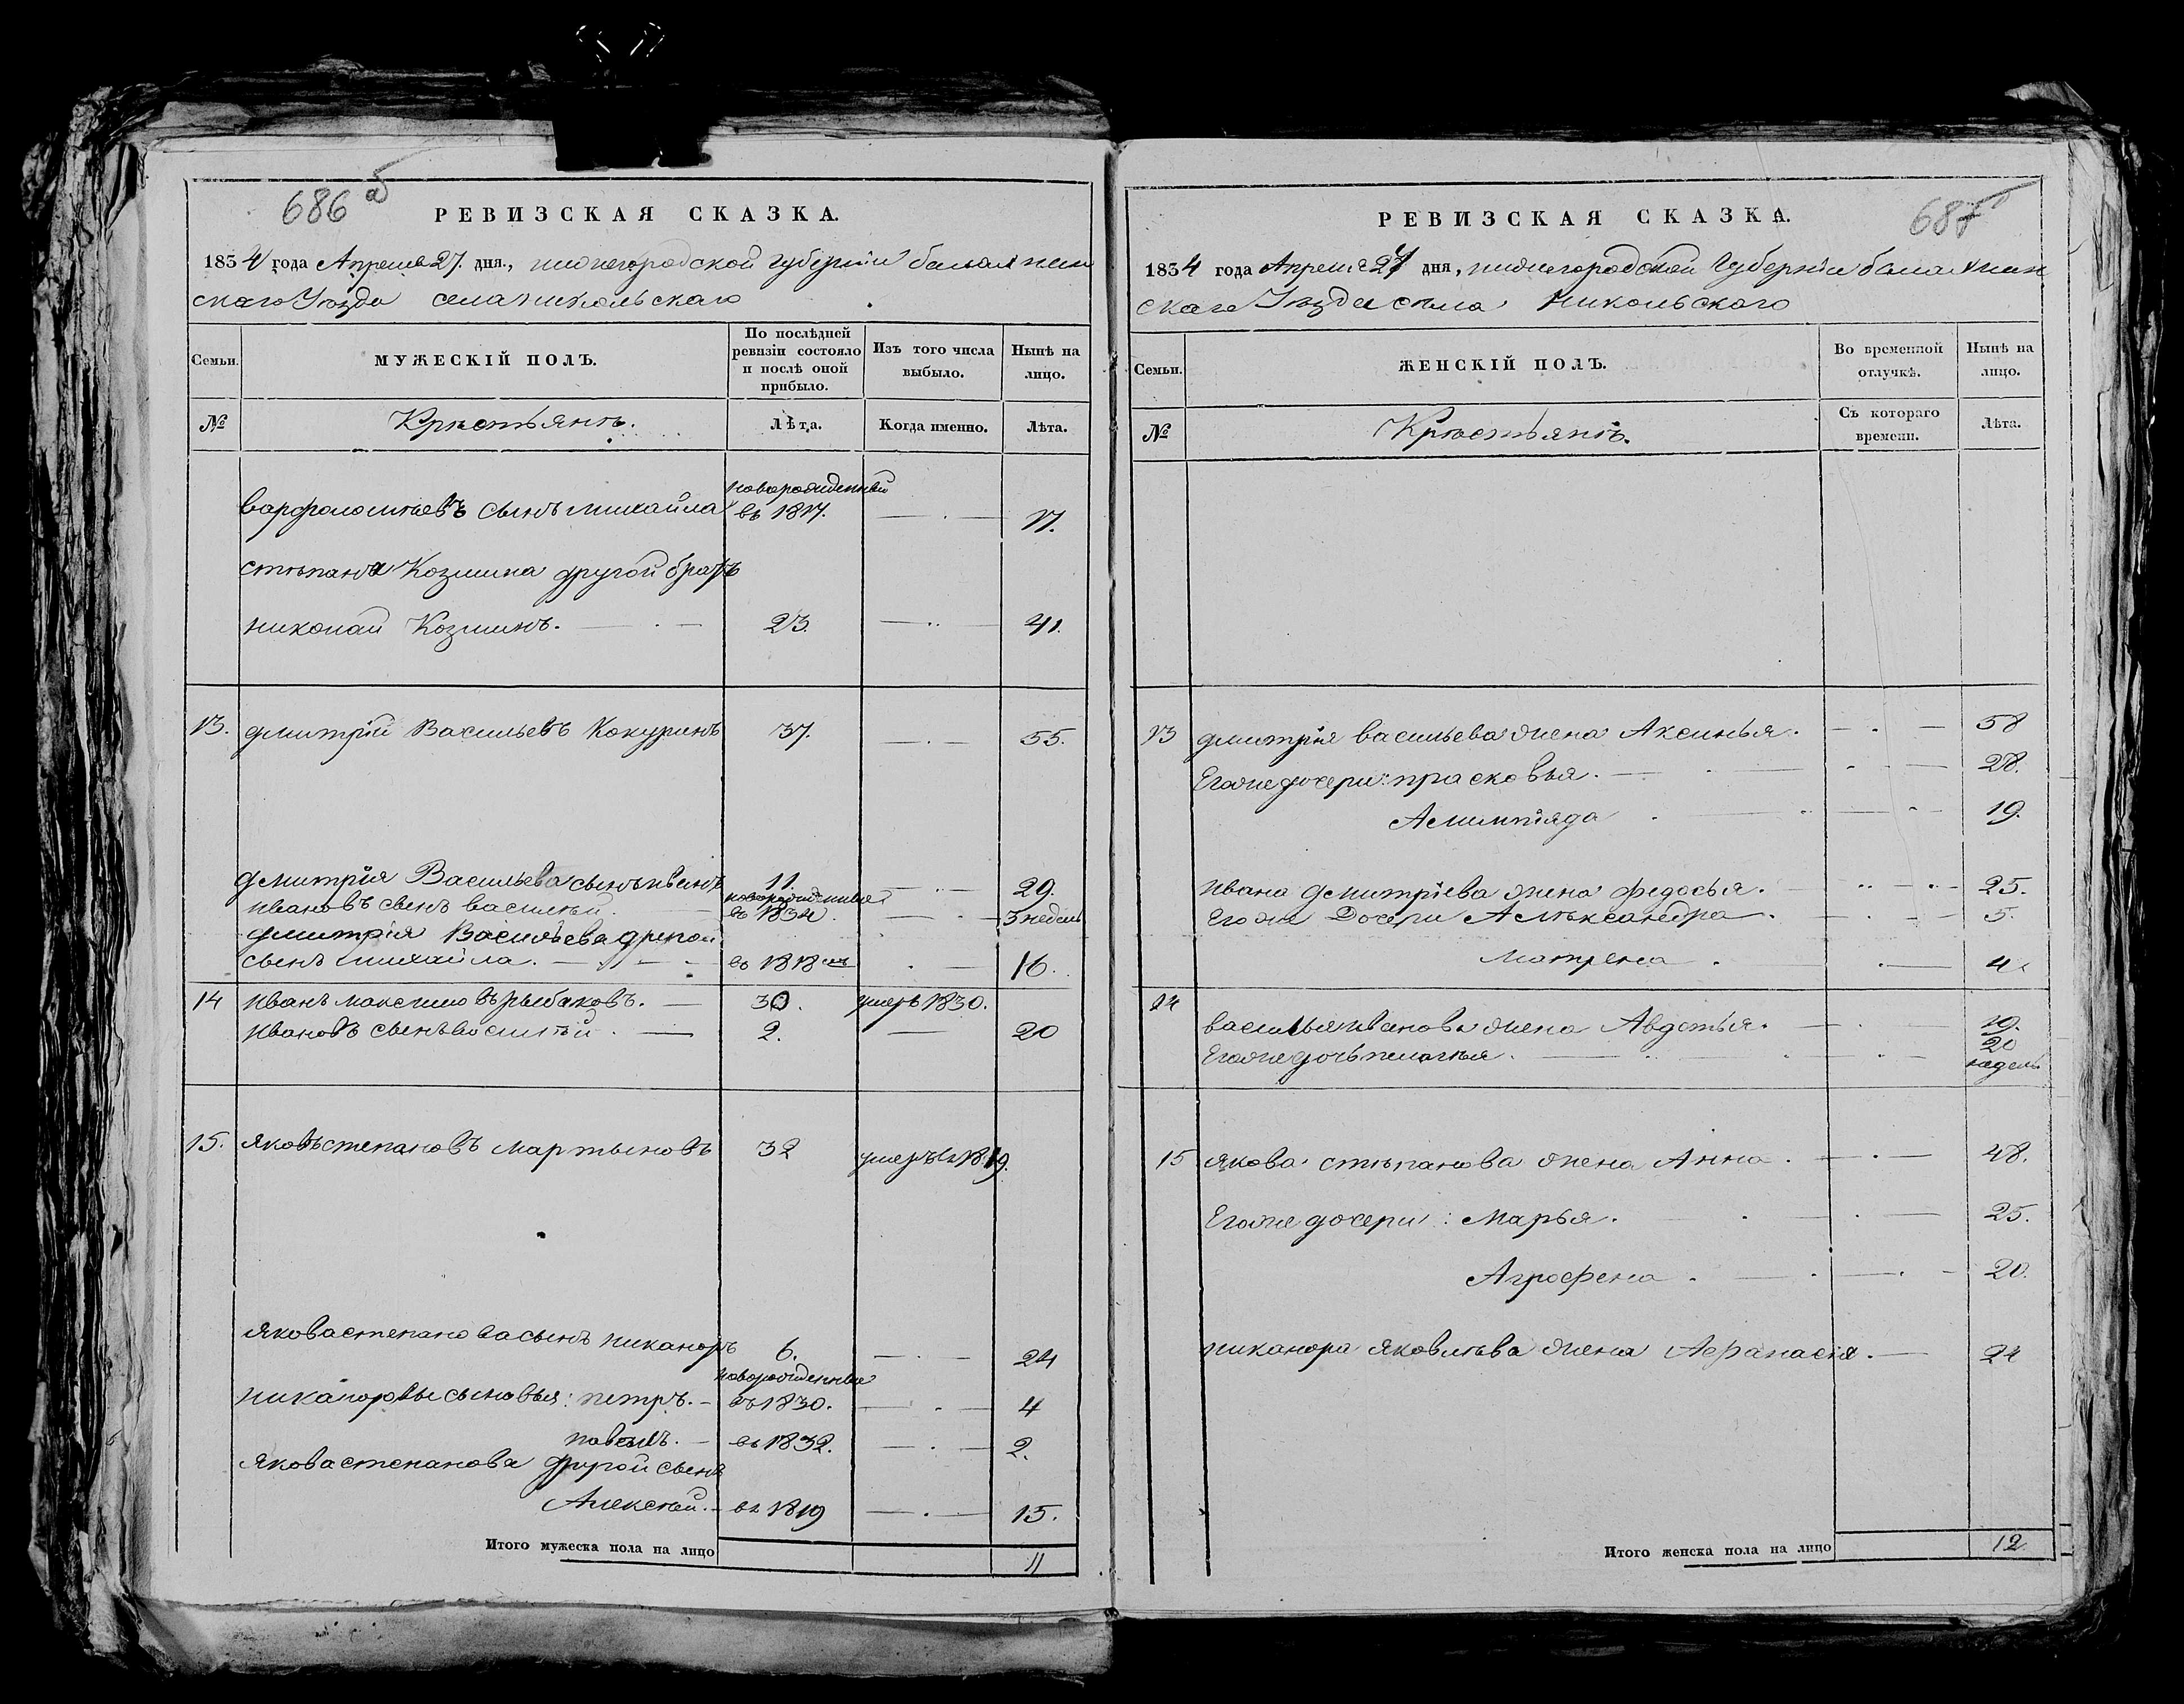 686 об
РЕВИЗСКАЯ СКАЗКА.
1834 года Апреля 27. дня., нижегородской губернiи балахнин
скаго Уезда села никольскаго
Семьи. МУЖЕСКIЙ ПОЛЪ. По послѣдней ревизiи состояло и послѣ оной прибыло. Изъ того числа выбыло. Нынѣ на лицо.
№ Крестьянъ. Лѣта. Когда именно. Лѣта.
новорожденный
варфоломѣевъ сынъ михайла въ 1817. 17.
стѣпана Козмина другой братъ
николай Козминъ. 23. 41.
13. дмитрiй Васильевъ Кокуринъ 37. 55.
дмитрiя Васильева сынъ иванъ 11. 29.
новорожденные
ивановъ сынъ василѣй. въ 1834. 3 недель
дмитрiя Васильева другой
сынъ михайла. въ 1818 16.
14 иванъ максимовъ рыбаковъ. 30. умеръ 1830.
ивановъ сынъ василѣй. 2. 20
15. яковъ степановъ мартыновъ 32 умеръ въ 1819.
якова степанова сынъ никаноръ 6. 24
новорожденные
никаноровы сыновья: петръ. въ 1830. 4
павелъ. въ 1832. 2.
якова степанова другой сынъ
Алексѣй. въ 1819 15.
Итого мужеска пола на лицо 11
687
РЕВИЗСКАЯ СКАЗКА.
1834 года Апреля 27 дня, нижегородской Губернiи балахнин
скаго Уезда села Никольскаго
Семьи. ЖЕНСКIЙ ПОЛЪ. Во временной отлучкѣ. Нынѣ на лицо.
№ Крѣстьянъ. Съ котораго времени. Лѣта.
13 дмитрiя васильева жена Аксинья. 58
Егоже дочери: прасковья. 28.
Алимпiяда 19.
ивана дмитрiева жена федосья. 25.
Его же Дочери Алѣксандра. 5.
Матрена. 4.
14
василья иванова жена Авдотья. 19.
Егоже дочь пелагѣя. 20
недель
15 якова стѣпанова жена Анна. 48.
Егоже дочери: Марья. 25.
Аграфена. 20.
никанора яковлѣва жена Афанасiя. 24
Итого женска пола на лицо 12